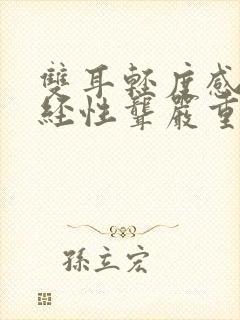 雙耳輕度感
經性聾嚴重
孫立宏